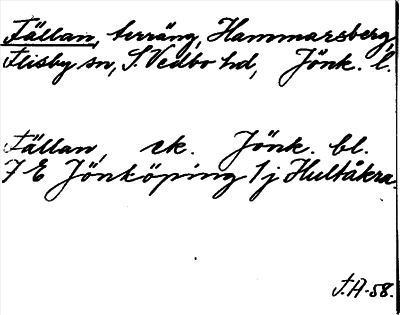 Fällan, terräng, Hammarsberg,
Flisby sn, S. Vedbo hd, Jönk. l.
Fällan, ek. Jönk. bl.
7 E Jönköping 1 j Hultåkra.
J.A-58.